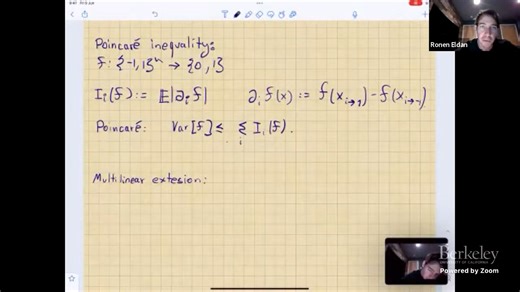 Poincaré inequality:
f: {-1,1}ⁿ → {0,1}
Iᵢ(f) := 𝔼|∂ᵢf|   ∂ᵢf(x) := f(x_{i→1}) - f(x_{i→-1})
Poincaré: Var[f] ≤ Σ_i Iᵢ(f).
Multilinear extesion:
Ronen Eldan
Berkeley
UNIVERSITY OF CALIFORNIA
Powered by Zoom